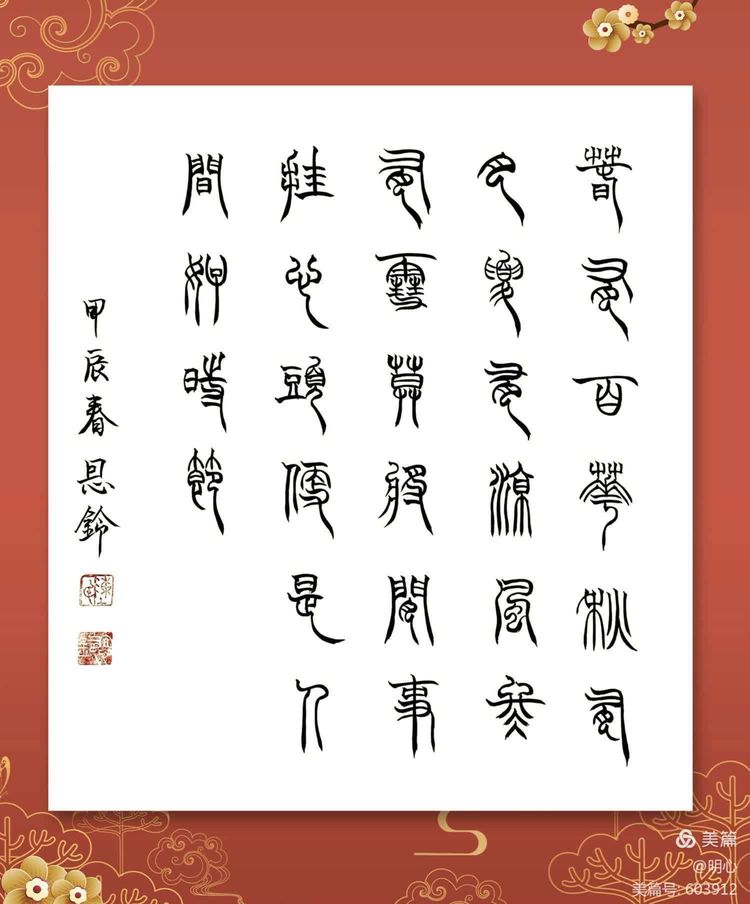 春有百華秋有
月夏有涼風冬
有雪莫將閒事
挂心頭便是人
間好時節
甲辰春鈴
美篇
@明心
美篇号: 603912